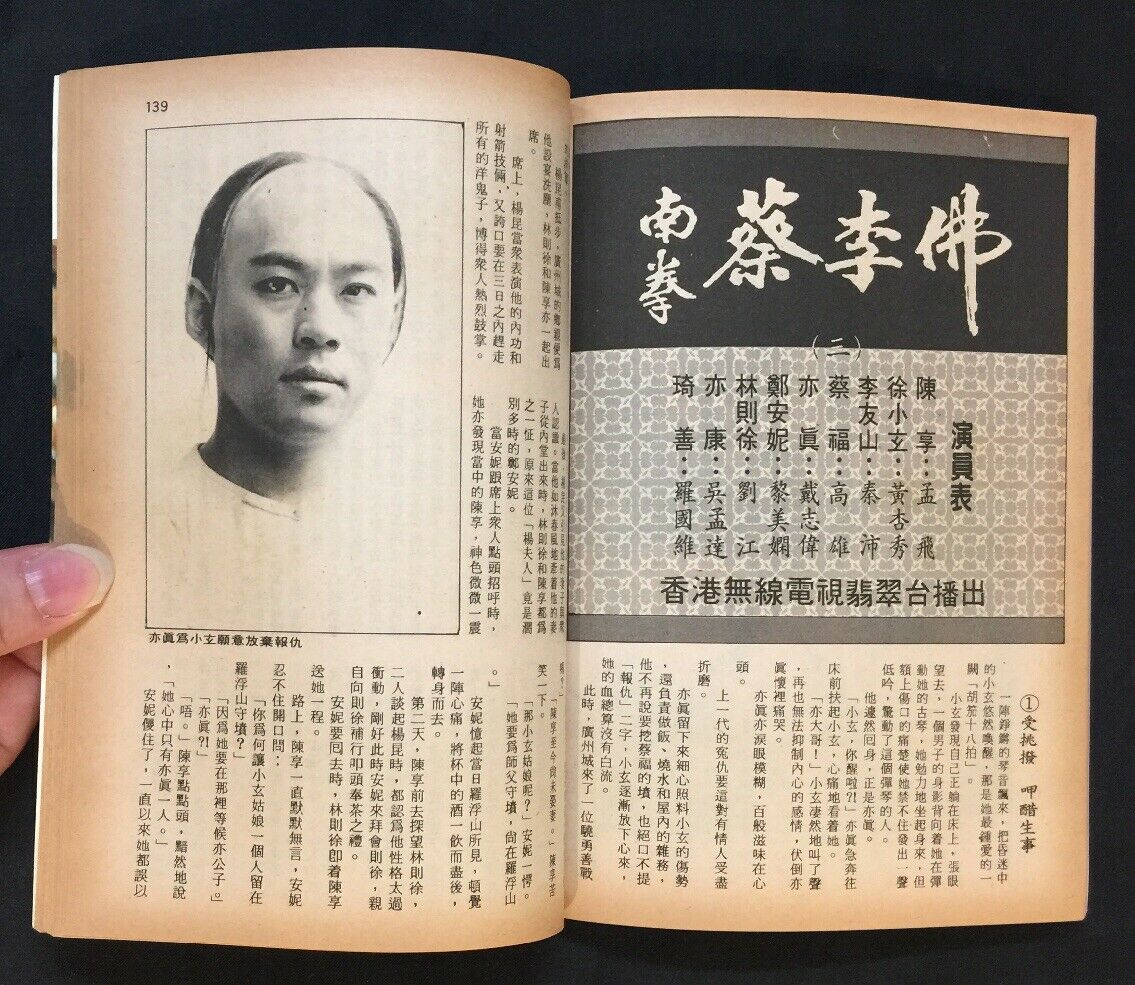 南拳蔡李佛
(三)
演員表
陳享：孟飛
徐小玄：黃杏秀
李友山：秦沛
蔡福：高雄
亦眞：戴志偉
鄭安妮：黎美嫻
林則徐：劉江
亦康：吳孟達
琦善：羅國維
香港無線電視翡翠台播出
①受挑撥 呷醋生事
一陣錚鏘的琴音飄來，把昏迷中
的小玄悠然喚醒，那是她最鍾愛的一
闋「胡笳十八拍」。
小玄發現自己正躺在床上，張眼
望去，一個男子的身影背向着她在彈
動她的古琴，她勉力地坐起身來，但
額上傷口的痛楚使她禁不住發出一聲
低吟，驚動了這個彈琴的人。
他遽然囘身，正是亦眞。
「小玄，你醒啦?!」亦眞急奔往
床前扶起小玄，心痛地看着她。
「亦大哥！」小玄淒然地叫了聲
，再也無法抑制內心的感情，伏倒亦
眞懷裡痛哭。
亦眞亦淚眼模糊，百般滋味在心
頭。
上一代的寃仇要這對有情人受盡
折磨。
亦眞留下來細心照料小玄的傷勢
，還負責做飯、燒水和屋內的雜務，
他不再說要挖蔡福的墳，也絕口不提
「報仇」二字，小玄逐漸放下心來，
她的血總算沒有白流。
此時，廣州城來了一位驍勇善戰
139
楊昆甫抵步，廣州城的鄉親便爲
他設宴洗塵，林則徐和陳享亦一起出
席。
席上，楊昆當衆表演他的內功和
射箭技倆，又誇口要在三日之內趕走
所有的洋鬼子，博得衆人熱烈鼓掌。
人認識。當他如沐春風地牽着他的妻
子從內堂出來時，林則徐和陳享都爲
之一怔，原來這位「楊夫人」竟是濶
別多時的鄭安妮。
當安妮跟席上衆人點頭招呼時，
她亦發現當中的陳享，神色微微一震
陳享苦
笑一下。
「那小玄姑娘呢？」安妮一愕。
「她要爲師父守墳，尙在羅浮山
。」
安妮憶起當日羅浮山所見，頓覺
一陣心痛，將杯中的酒一飲而盡後，
轉身而去。
第二天，陳享前去探望林則徐，
二人談起楊昆時，都認爲他性格太過
衝動，剛好此時安妮來拜會則徐，親
自向則徐補行叩頭奉茶之禮。
安妮要囘去時，林則徐卽着陳享
送她一程。
路上，陳享一直默默無言，安妮
忍不住開口問：
「你爲何讓小玄姑娘一個人留在
羅浮山守墳？」
「因爲她要在那裡等候亦公子。」
「亦眞?!」
「唔。」陳享點點頭，黯然地說
，「她心中只有亦眞一人。」
安妮儍住了，一直以來她都誤以
亦眞爲小玄願意放棄報仇